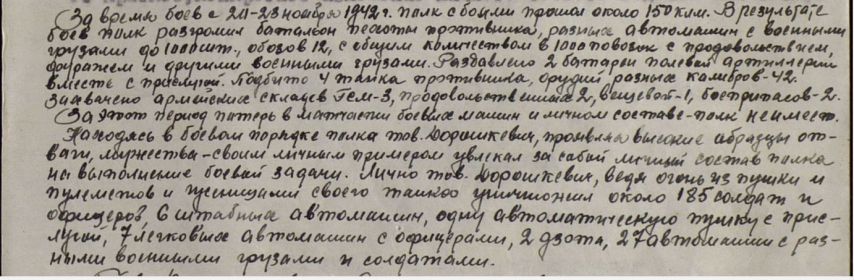 За время боев с 20-23 ноября 1942 г. полк с боями прошел около 150 клм. В результате
боев полк разгромил батальон пехоты противника, разных автомашин с военными
грузами до 1000 шт., обозов 12, с общим количеством в 1000 повозок с продовольствием,
фуражем и другими военными грузами. Раздавлено 2 батареи полевой артиллерии
вместе с прислугой. Подбито 4 танка противника, орудий разных калибров - 42.
Захвачено армейских складов ГСМ-3, продовольственных 2, вещевой-1, боеприпасов-2.
За этот период потерь в матчасти боевых машин и личном составе - полк не имеет.
Находясь в боевом порядке полка тов. Дорошкевич, проявлял высокие образцы от-
ваги, мужества - своим личным примером увлекал за собой личный состав полка
на выполнение боевой задачи. Лично тов. Дорошкевич, ведя огонь из пушки и
пулеметов и гусеницами своего танка уничтожил около 185 солдат и
офицеров, 6 штабных автомашин, одну автоматическую пушку с прис-
лугой, 7 легковых автомашин с офицерами, 2 дзота, 27 автомашин с раз-
ными военными грузами и солдатами.